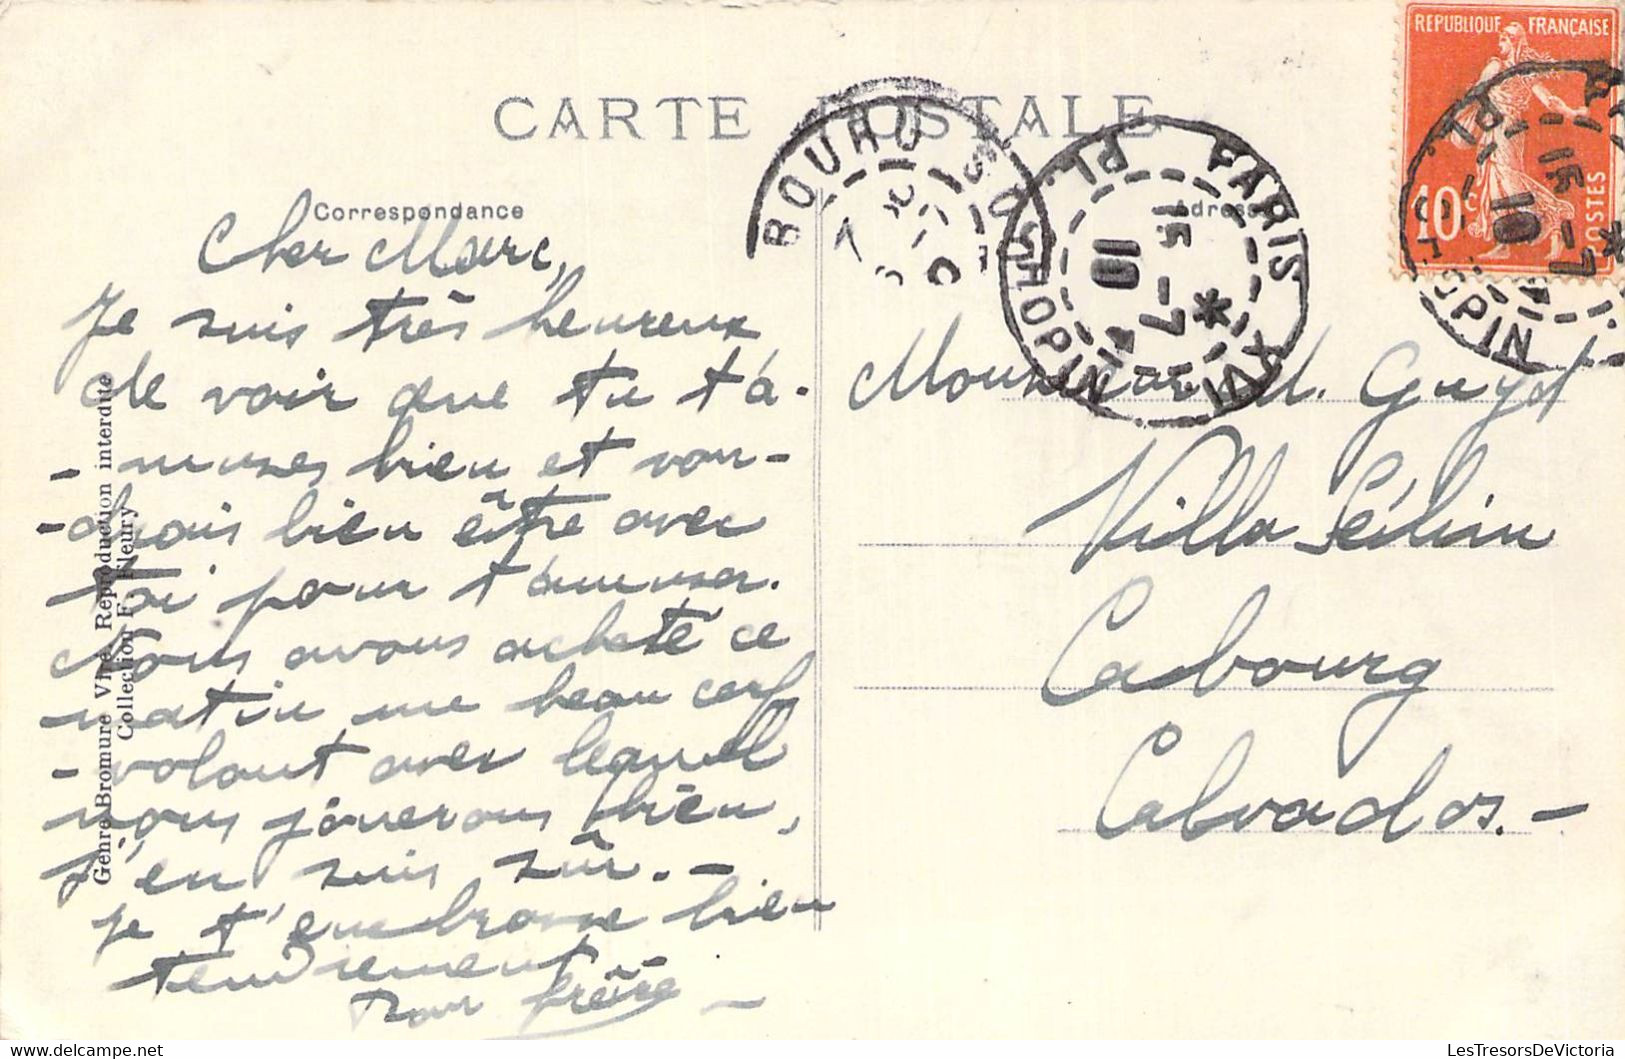 CARTE POSTALE
Correspondance
Adresse
REPUBLIQUE FRANÇAISE
10c
POSTES
PARIS XVI
PL. CHOPIN
15 -7
10
PARIS
PL. CHOPIN
15 -7
10
Cher Marc,
Je suis très heureux
de voir que tu t'a-
-muses bien et vou-
-drais bien être avec
toi pour t'amuser.
Nous avons acheté ce
matin un beau cerf
-volant avec lequel
nous jouerons bien,
j'en suis sûr. -
Je t'embrasse bien
tendrement
Ton frère -
Monsieur M. Guyot
Villa
Cabourg
Calvados. -
Genre Bromure Vite Reproduction interdite
Collection F. Fleury
© LesTresorsDeVictoria-delcampe.net
LesTresorsDeVictoria